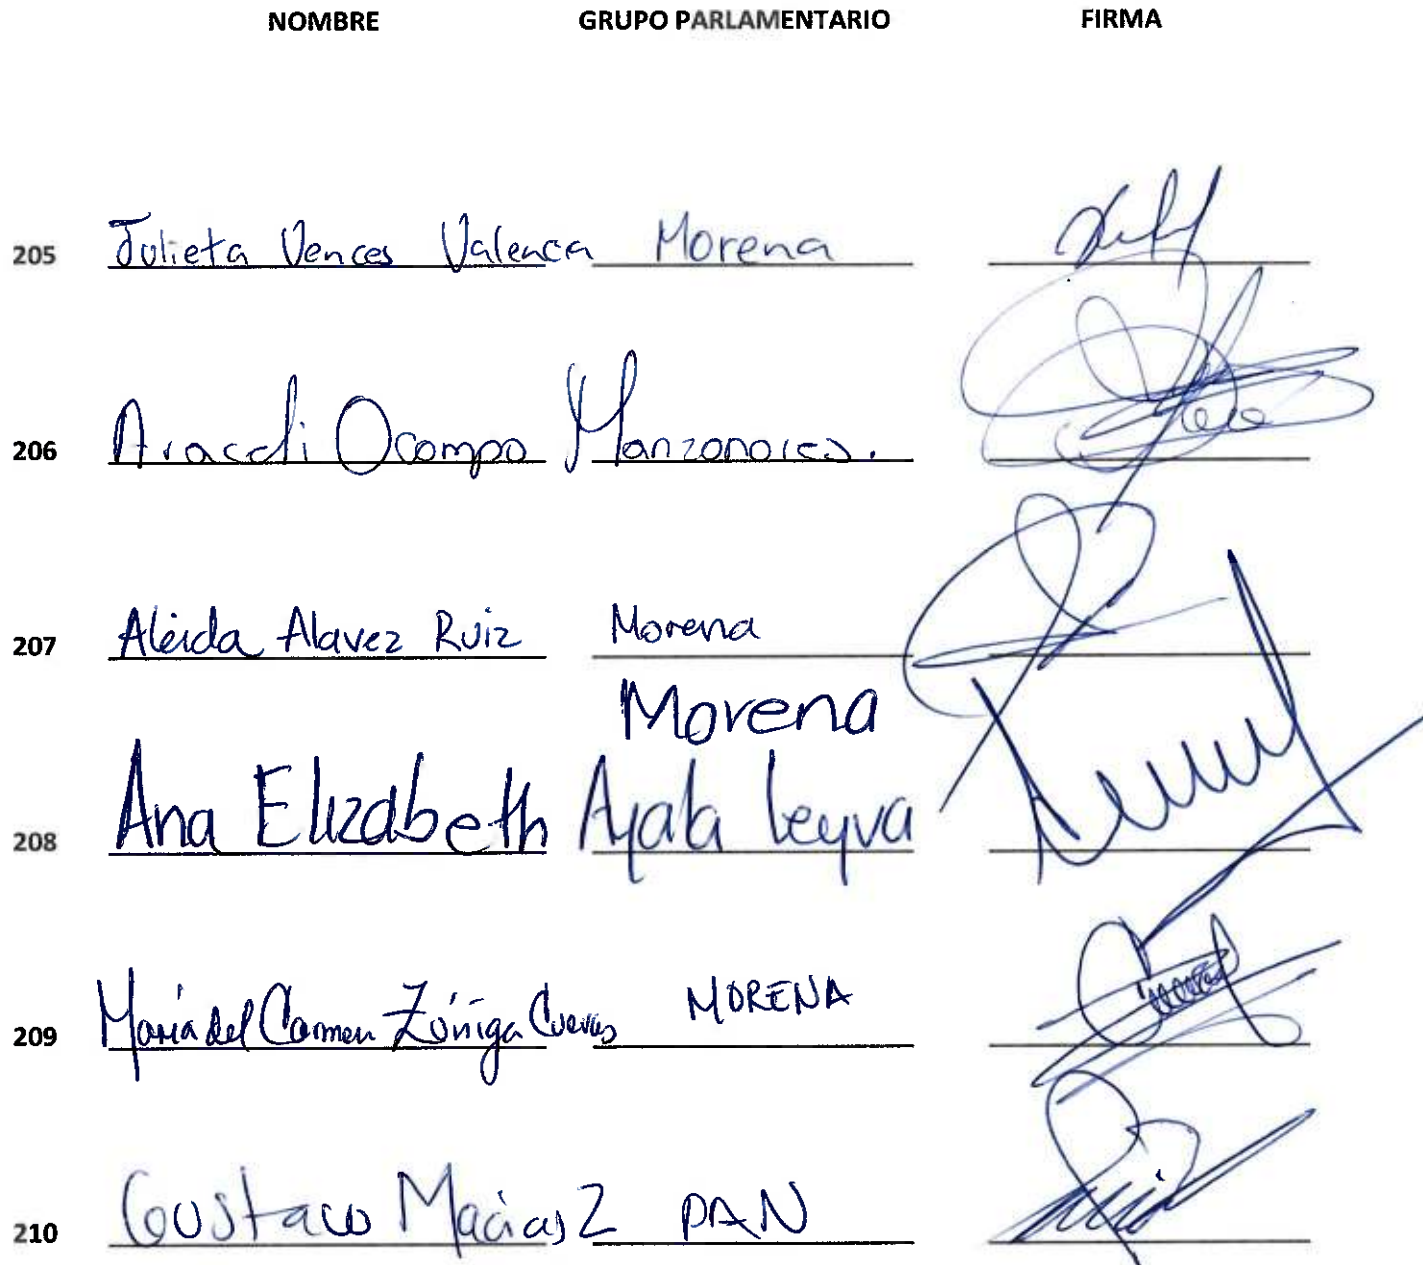 NOMBRE GRUPO PARLAMENTARIO FIRMA
205 Julieta Vences Valencia Morena
206 Araceli Ocampo Manzanares.
207 Aleida Alavez Ruiz Morena
Morena
208 Ana Elizabeth Ayala Leyva
209 María del Carmen Zúñiga Cuevas MORENA
210 Gustavo Macias Z PAN